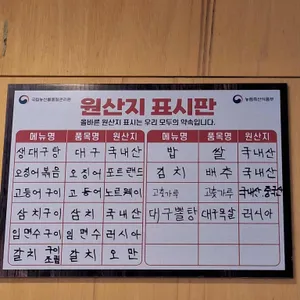 국립농산물품질관리원
농림축산식품부
원산지 표시판
올바른 원산지 표시는 우리 모두의 약속입니다.
메뉴명 품목명 원산지 메뉴명 품목명 원산지
생대구탕 대구 국내산 밥 쌀 국내산
오징어볶음 오징어 포트랜드 김치 배추 국내산
고등어구이 고등어 노르웨이 고춧가루 고춧가루 국내산,중국산
삼치구이 삼치 국내산 대구뽈탕 대구목살 러시아
임연수구이 임연수 러시아
갈치 구이 조림 갈치 오만